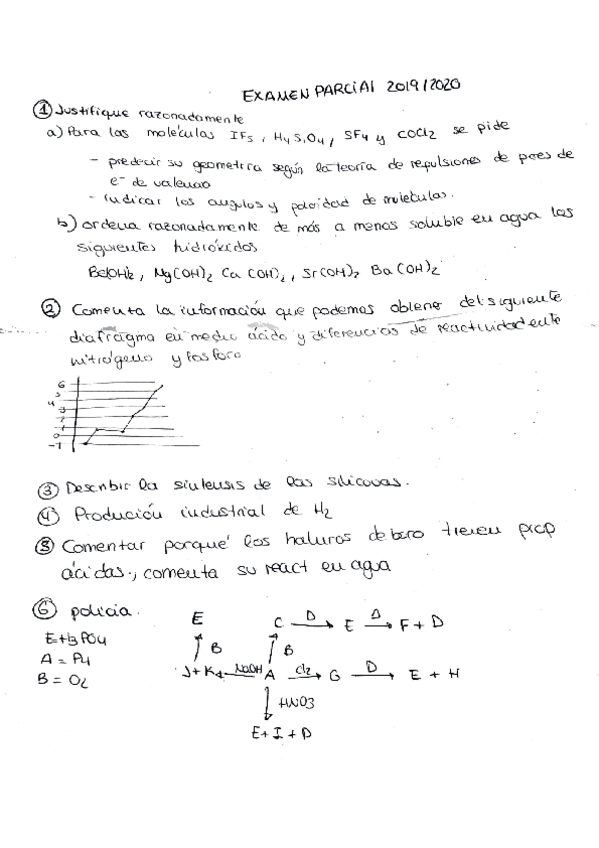 EXAMEN PARCIAL 2019/2020
① Justifique razonadamente
a) Para las moléculas IF5, H4SiO4, SF4 y COCl2 se pide
- predecir su geometría según la teoría de repulsiones de pares de
e- de valencia
- Indicar los angulos y polaridad de moleculas.
b) ordena razonadamente de más a menos soluble en agua los
siguientes hidróxidos
Be(OH)2, Mg(OH)2 Ca(OH)2, Sr(OH)2 Ba(OH)2
② Comenta la información que podemos obtener del siguiente
diafragma en medio ácido y diferencias de reactividad ente
nitrógeno y fosforo
6
5
4
3
2
1
0
-1
③ Describir la sintesis de las siliconas.
④ Produción industrial de H2
⑤ Comentar porqué los haluros de boro tienen prop
ácidas., comenta su react en agua
⑥ policia.
E C D→ E Δ→ F + D
E+H3PO4 ↑ B ↑ B
A = P4 J + K ←NaOH A Cl2→ G D→ E + H
B = O2 ↓ HNO3
E + I + D